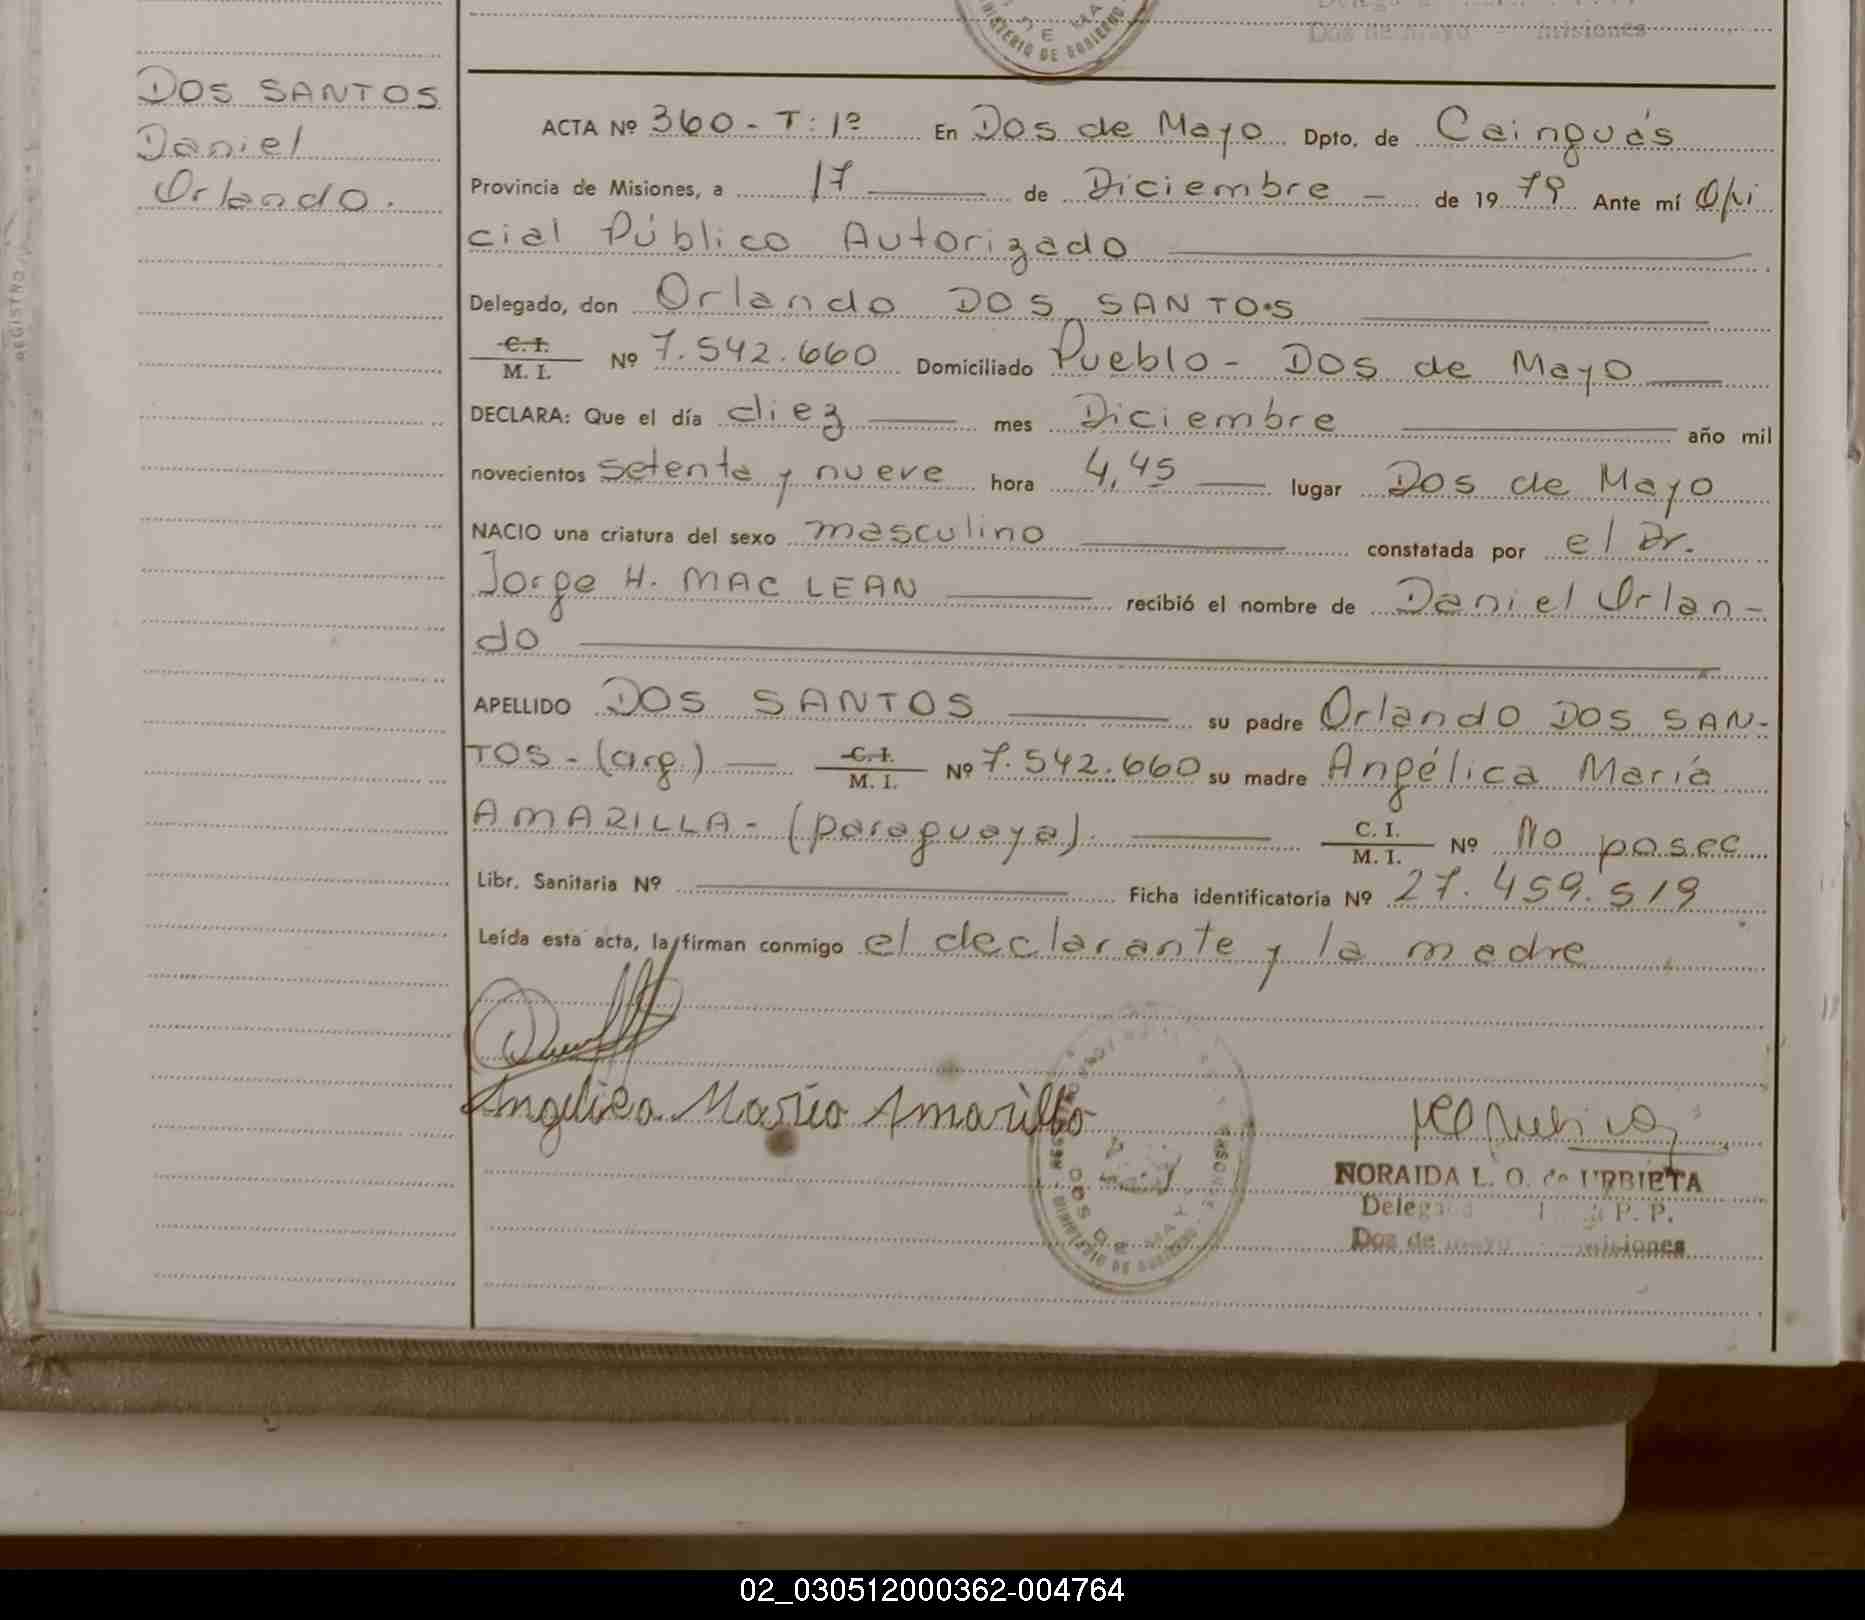 DE MA
MINISTERIO DE GOBIERNO
Dos de mayo - misiones
DOS SANTOS
Daniel
Orlando.
ACTA Nº 360 - T: 1º En Dos de Mayo Dpto. de Cainguás
Provincia de Misiones, a 17 de Diciembre de 1979 Ante mí Ofi
cial Público Autorizado
Delegado, don Orlando DOS SANTOS
C. I.
M. I. Nº 7.542.660 Domiciliado Pueblo - Dos de Mayo
DECLARA: Que el día diez mes Diciembre año mil
novecientos setenta y nueve hora 4,45 lugar Dos de Mayo
NACIO una criatura del sexo masculino constatada por el Dr.
Jorge H. MAC LEAN recibió el nombre de Daniel Orlan-
do
APELLIDO DOS SANTOS su padre Orlando DOS SAN-
TOS - (arg.) C. I.
M. I. Nº 7.542.660 su madre Angélica María
AMARILLA - (paraguaya). C. I.
M. I. Nº No posee
Libr. Sanitaria Nº Ficha identificatoria Nº 27.459.519
Leída esta acta, la firman conmigo el declarante y la madre
Angelica María Amarilla
DOS DE MAYO
MINISTERIO DE GOBIERNO
NORAIDA L. O. de URBIETA
Delegada P. P.
Dos de mayo misiones
REGISTRO
02_030512000362-004764